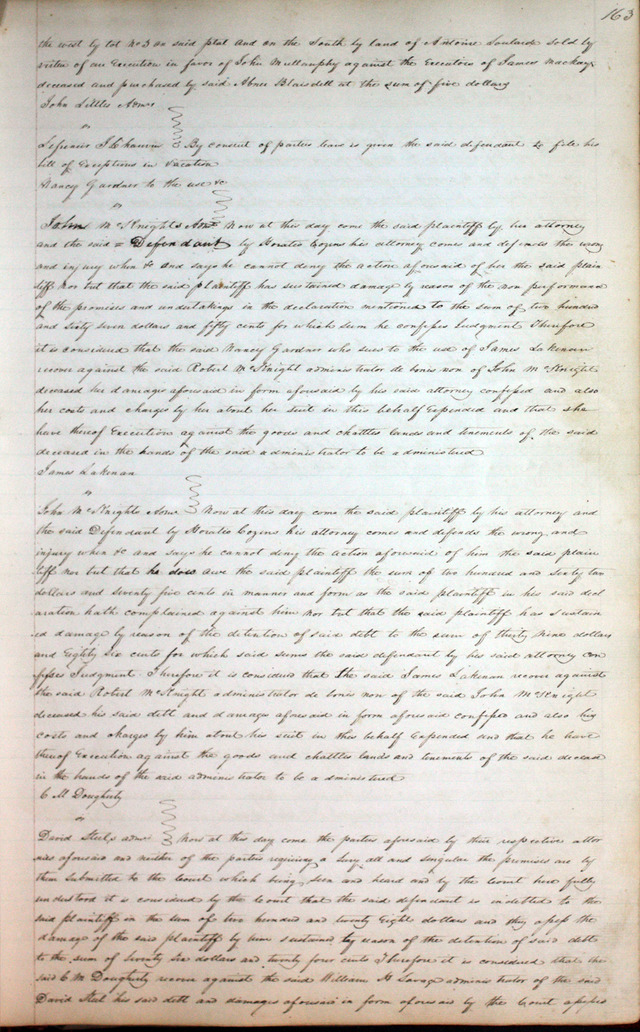 163
the west by lot No 3 on said plat and on the South by land of Antoine Soulards sold by
virtue of an Execution in favor of John Mullanphy against the Executors of James Mackay
deceased and purchased by said Abner Blaisdell at the sum of five dollars
John Lilles Admr
vs
Lefrenier J Chauvin By consent of parties leave is given the said defendant to file his
bill of Exceptions in vacation
Nancy Gardner to the use &c
vs
John McKnights Admr Now at this day come the said plaintiff by her attorney
and the said = Defendant by Horatio Cozens his attorney comes and defends the wrong
and injury when &c and says he cannot deny the action aforesaid of her the said plain
tiff nor but that the said plaintiff has sustained damage by reason of the non performance
of the promises and undertakings in the declaration mentioned to the sum of two hundred
and sixty seven dollars and fifty cents for which sum he confesses Judgment Therefore
it is considered that the said Nancy Gardner who sues to the use of James Lakenan
recover against the said Robert McKnight administrator de bonis non of John McKnight
deceased her damages aforesaid in form aforesaid by his said attorney confessed and also
her costs and charges by her about her suit in this behalf Expended and that she
have thereof Execution against the goods and chattles lands and tenements of the said
deceased in the hands of the said administrator to be administered
James Lakenan
vs
John McKnights Admr Now at this day come the said plaintiff by his attorney and
the said Defendant by Horatio Cozens his attorney comes and defends the wrong and
injury when &c and says he cannot deny the action aforesaid of him the said plain
tiff nor but that he does owe the said plaintiff the sum of two hundred and sixty two
dollars and seventy five cents in manner and form as the said plaintiff in his said decl
aration hath complained against him nor but that the said plaintiff has sustain
ed damage by reason of the detention of said debt to the sum of thirty nine dollars
and Eighty Six cents for which said sums the said defendant by his said attorney con
fesses Judgment. Therefore it is considered that the said James Lakenan recover against
the said Robert McKnight administrator de bonis non of the said John McKnight
deceased his said debt and damages aforesaid in form aforesaid confessed and also his
costs and charges by him about his suit in this behalf Expended and that he have
thereof Execution against the goods and chattles lands and tenements of the said deceased
in the hands of the said administrator to be administered
C M Dougherty
vs
David Steel,s admr Now at this day come the parties aforesaid by their respective attor
nies aforesaid and neither of the parties requiring a Jury all and singular the premises are by
them submitted to the Court which being seen and heard and by the Court here fully
understood it is considered by the Court that the said defendant is indebted to the
said plaintiff in the sum of two hundred and twenty Eight dollars and they assess the
damage of the said plaintiff by him sustained by reason of the detention of said debt
to the sum of twenty six dollars and twenty four cents Therefore it is considered that the
said C M Dougherty recover against the said William H Savage administrator of the said
David Steel his said debt and damages aforesaid in form aforesaid by the Court assessed